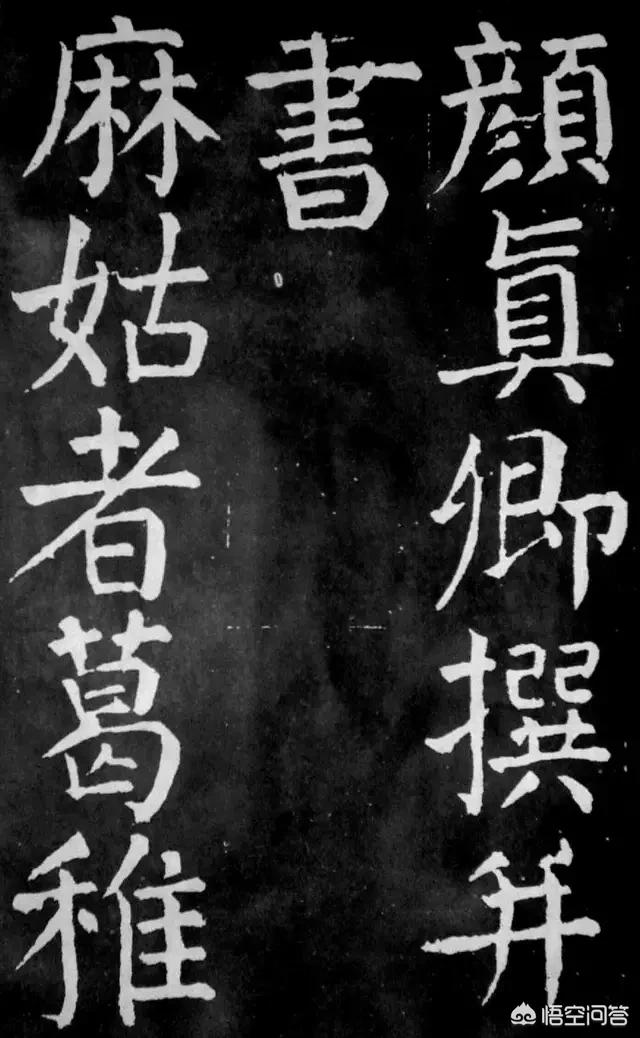 顔眞卿撰并
書
麻姑者葛稚
悟空问答